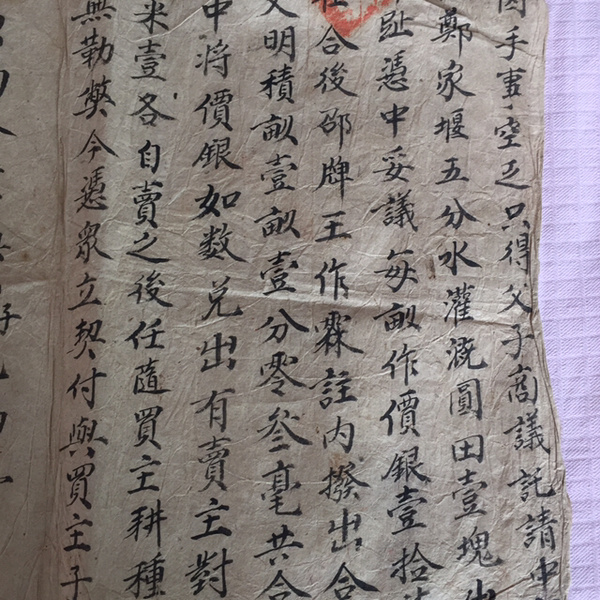 因手事空乏只得父子商議託請中
鄭家堰五分水灌溉圓田壹塊
趾憑中妥議每畝作價銀壹拾
合後邵牌王作霖註內撥出合
明積畝壹畝壹分零叁毫共合
中將價銀如数兑出有賣主對
米壹各自賣之後任隨買主耕種
無勒獘今憑眾立契付與買主子